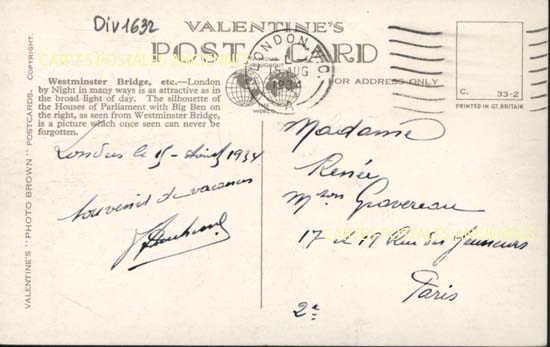 Div1632
VALENTINE'S
POST CARD
CARTES POSTALES ANCIENNES
FOR ADDRESS ONLY
LONDON W.C.
AUG
1934
THE
WORLD
C. 33-Z
PRINTED IN GT. BRITAIN
VALENTINE'S "PHOTO BROWN" POSTCARDS. COPYRIGHT.
Westminster Bridge, etc.—London
by Night in many ways is as attractive as in
the broad light of day. The silhouette of
the Houses of Parliament with Big Ben on
the right, as seen from Westminster Bridge,
is a picture which once seen can never be
forgotten.
Londres le 15 Août 1934
Souvenir de vacances
Madame
Renée
Mson Gravereau
17 et 19 Rue des Jeuneurs
CARTES POSTALES ANCIENNES
Paris
2e